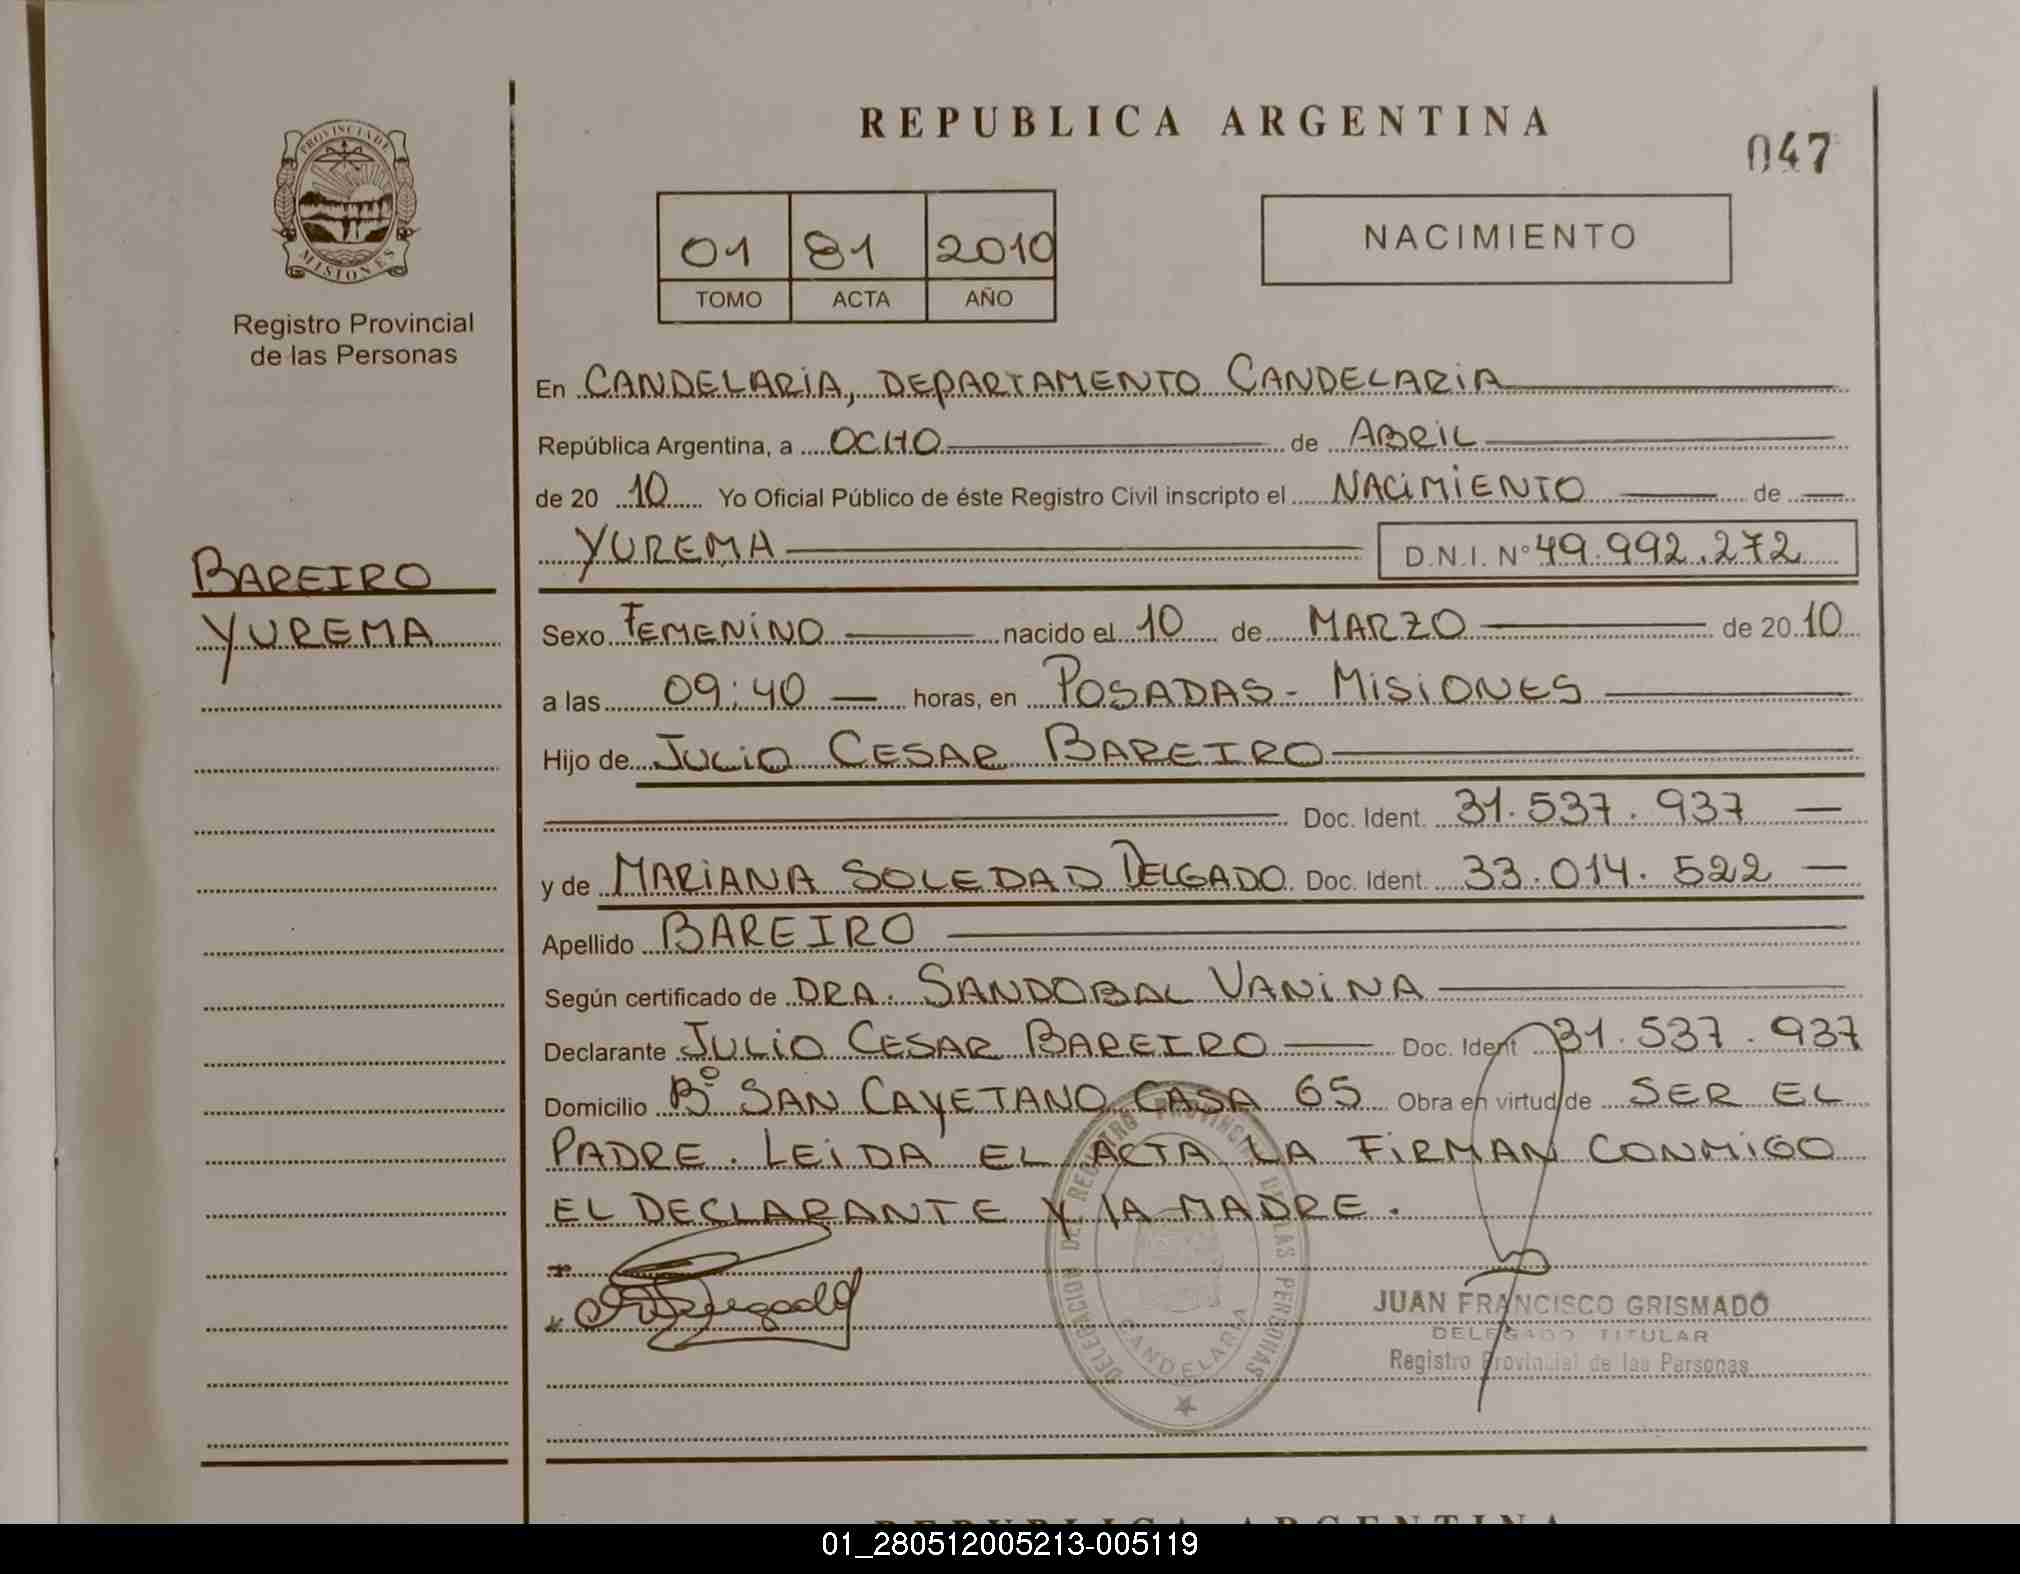 REPUBLICA ARGENTINA
047
PROVINCIA DE
MISIONES
Registro Provincial
de las Personas
01 81 2010
TOMO ACTA AÑO
NACIMIENTO
En CANDELARIA, DEPARTAMENTO CANDELARIA
República Argentina, a OCHO de ABRIL
de 20 10 Yo Oficial Público de éste Registro Civil inscripto el NACIMIENTO de
YUREMA D.N.I. Nº 49.992.272
BAREIRO
YUREMA
Sexo FEMENINO nacido el 10 de MARZO de 20 10
a las 09:40 horas, en POSADAS - MISIONES
Hijo de JULIO CESAR BAREIRO
Doc. Ident. 31.537.937
y de MARIANA SOLEDAD DELGADO Doc. Ident. 33.014.522
Apellido BAREIRO
Según certificado de DRA. SANDOBAL VANINA
Declarante JULIO CESAR BAREIRO Doc. Ident 31.537.937
Domicilio Bº SAN CAYETANO CASA 65 Obra en virtud de SER EL
PADRE. LEIDA EL ACTA LA FIRMAN CONMIGO
EL DECLARANTE Y LA MADRE.
DELEGACION DEL REGISTRO PROVINCIAL DE LAS PERSONAS
CANDELARIA
JUAN FRANCISCO GRISMADO
DELEGADO TITULAR
Registro Provincial de las Personas
REPUBLICA ARGENTINA
01_280512005213-005119